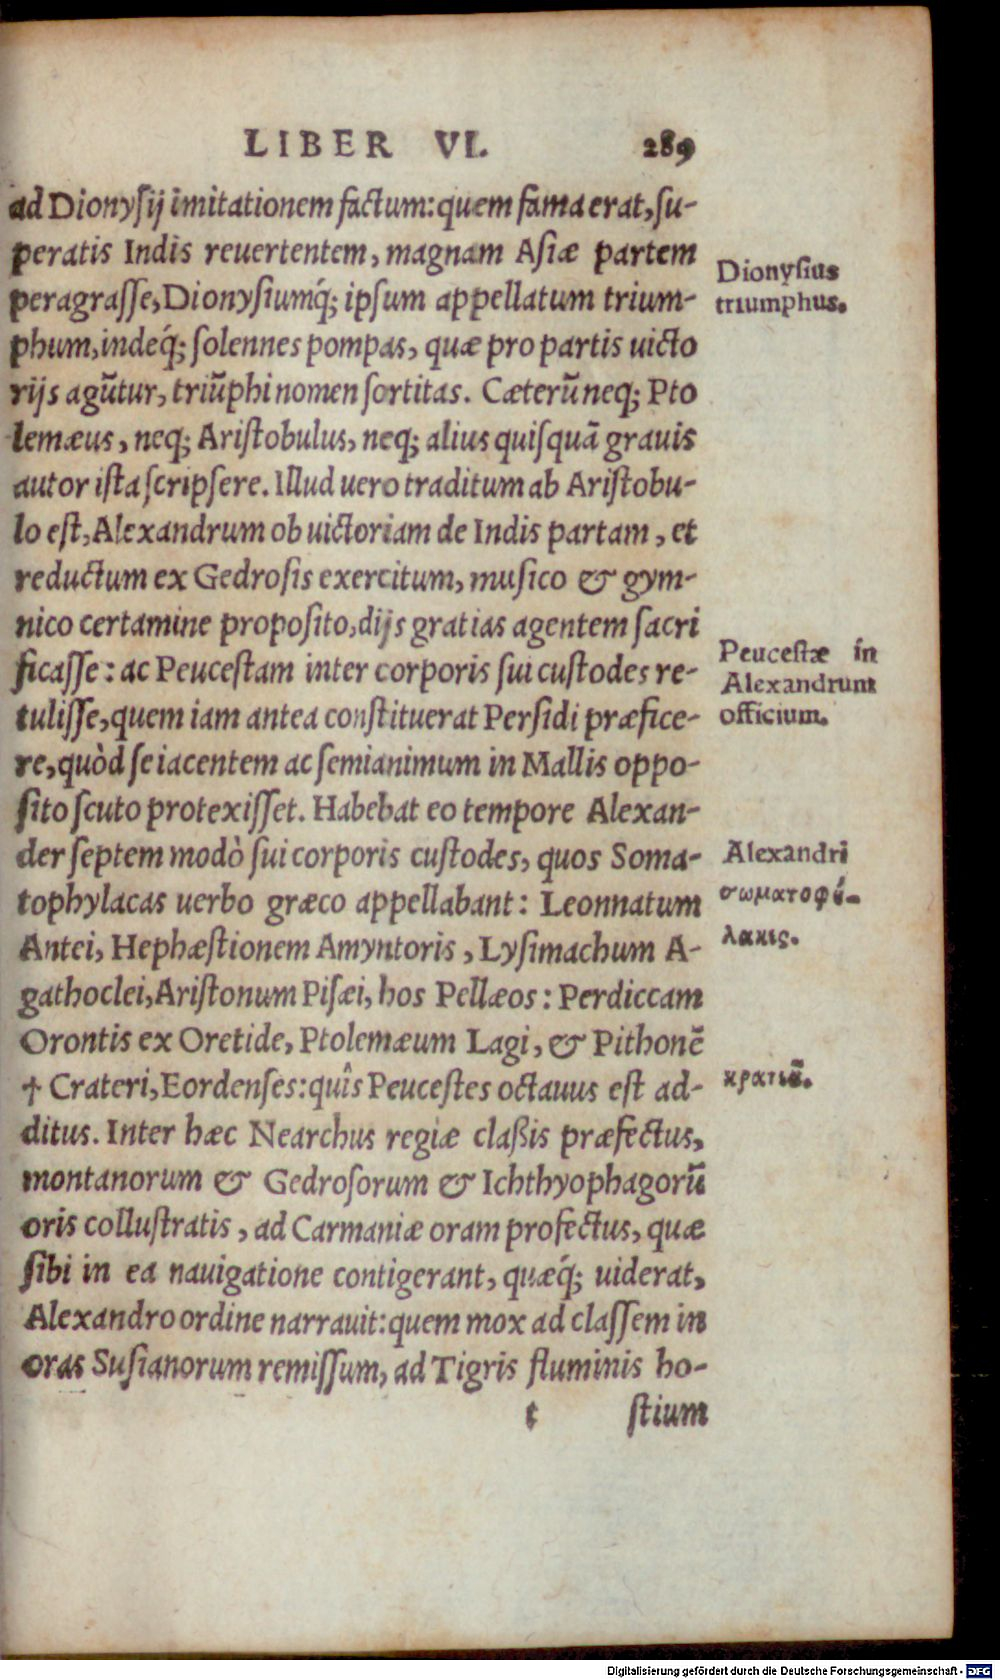 LIBER VI. 289
ad Dionysij imitationem factum: quem fama erat, su-
peratis Indis reuertentem, magnam Asiæ partem
peragrasse, Dionysiumq́; ipsum appellatum trium-
phum, indeq́; solennes pompas, quæ pro partis uicto
rijs agūtur, triūphi nomen sortitas. Cæterū neq; Pto
lemæus, neq; Aristobulus, neq; alius quisquā grauis
autor ista scripsere. Illud uero traditum ab Aristobu-
lo est, Alexandrum ob uictoriam de Indis partam, et
reductum ex Gedrosis exercitum, musico & gym-
nico certamine proposito, dijs gratias agentem sacri
ficasse: ac Peucestam inter corporis sui custodes re-
tulisse, quem iam antea constituerat Persidi præfice-
re, quòd se iacentem ac semianimum in Mallis oppo-
sito scuto protexisset. Habebat eo tempore Alexan-
der septem modò sui corporis custodes, quos Soma-
tophylacas uerbo græco appellabant: Leonnatum
Antei, Hephæstionem Amyntoris, Lysimachum A-
gathoclei, Aristonum Pisæi, hos Pellæos: Perdiccam
Orontis ex Oretide, Ptolemæum Lagi, & Pithonē
✝ Crateri, Eordenses: quîs Peucestes octauus est ad-
ditus. Inter hæc Nearchus regiæ claßis præfectus,
montanorum & Gedrosorum & Ichthyophagorū
oris collustratis, ad Carmaniæ oram profectus, quæ
sibi in ea nauigatione contigerant, quæq́; uiderat,
Alexandro ordine narrauit: quem mox ad classem in
oras Susianorum remissum, ad Tigris fluminis ho-
t stium
Dionysius
triumphus.
Peucestæ in
Alexandrum
officium.
Alexandri
σωματοφύ-
λακις.
Digitalisierung gefördert durch die Deutsche Forschungsgemeinschaft - DFG